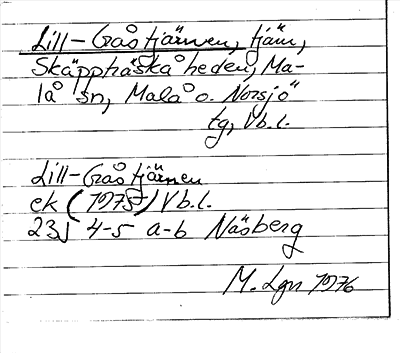 Lill-Gråstjärnen, tjärn,
Skäppträskåheden, Ma-
lå sn, Malå o. Norsjö
tg, Vb.l.
Lill-Gråstjärnen
ek (1975) Vb.l.
23J 4-5 a-b Näsberg
M. Lgn 1976